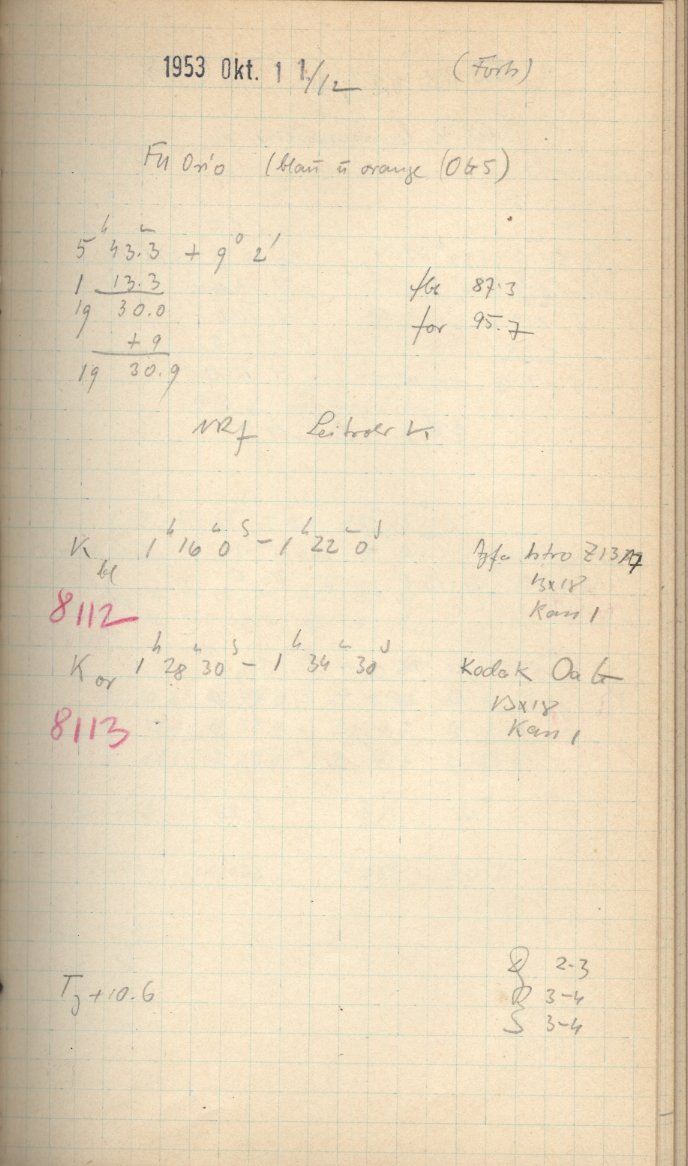 1953 Okt. 1 1/12 (Förts)
FU Orio (blau u orange (OG5)
5h 43.3m + 9° 2'
1 13.3
19 30.0
+ 9
19 30.9
fbl 87.3
for 95.7
NRf Leitrohr
K bl 1h 16m 0s - 1h 22m 0s
Agfa Astro Z
13x18
Kass 1
8112
K or 1h 28m 30s - 1h 34m 30s
Kodak Oa G
13x18
Kass 1
8113
T + 10.6
2-3
R 3-4
S 3-4